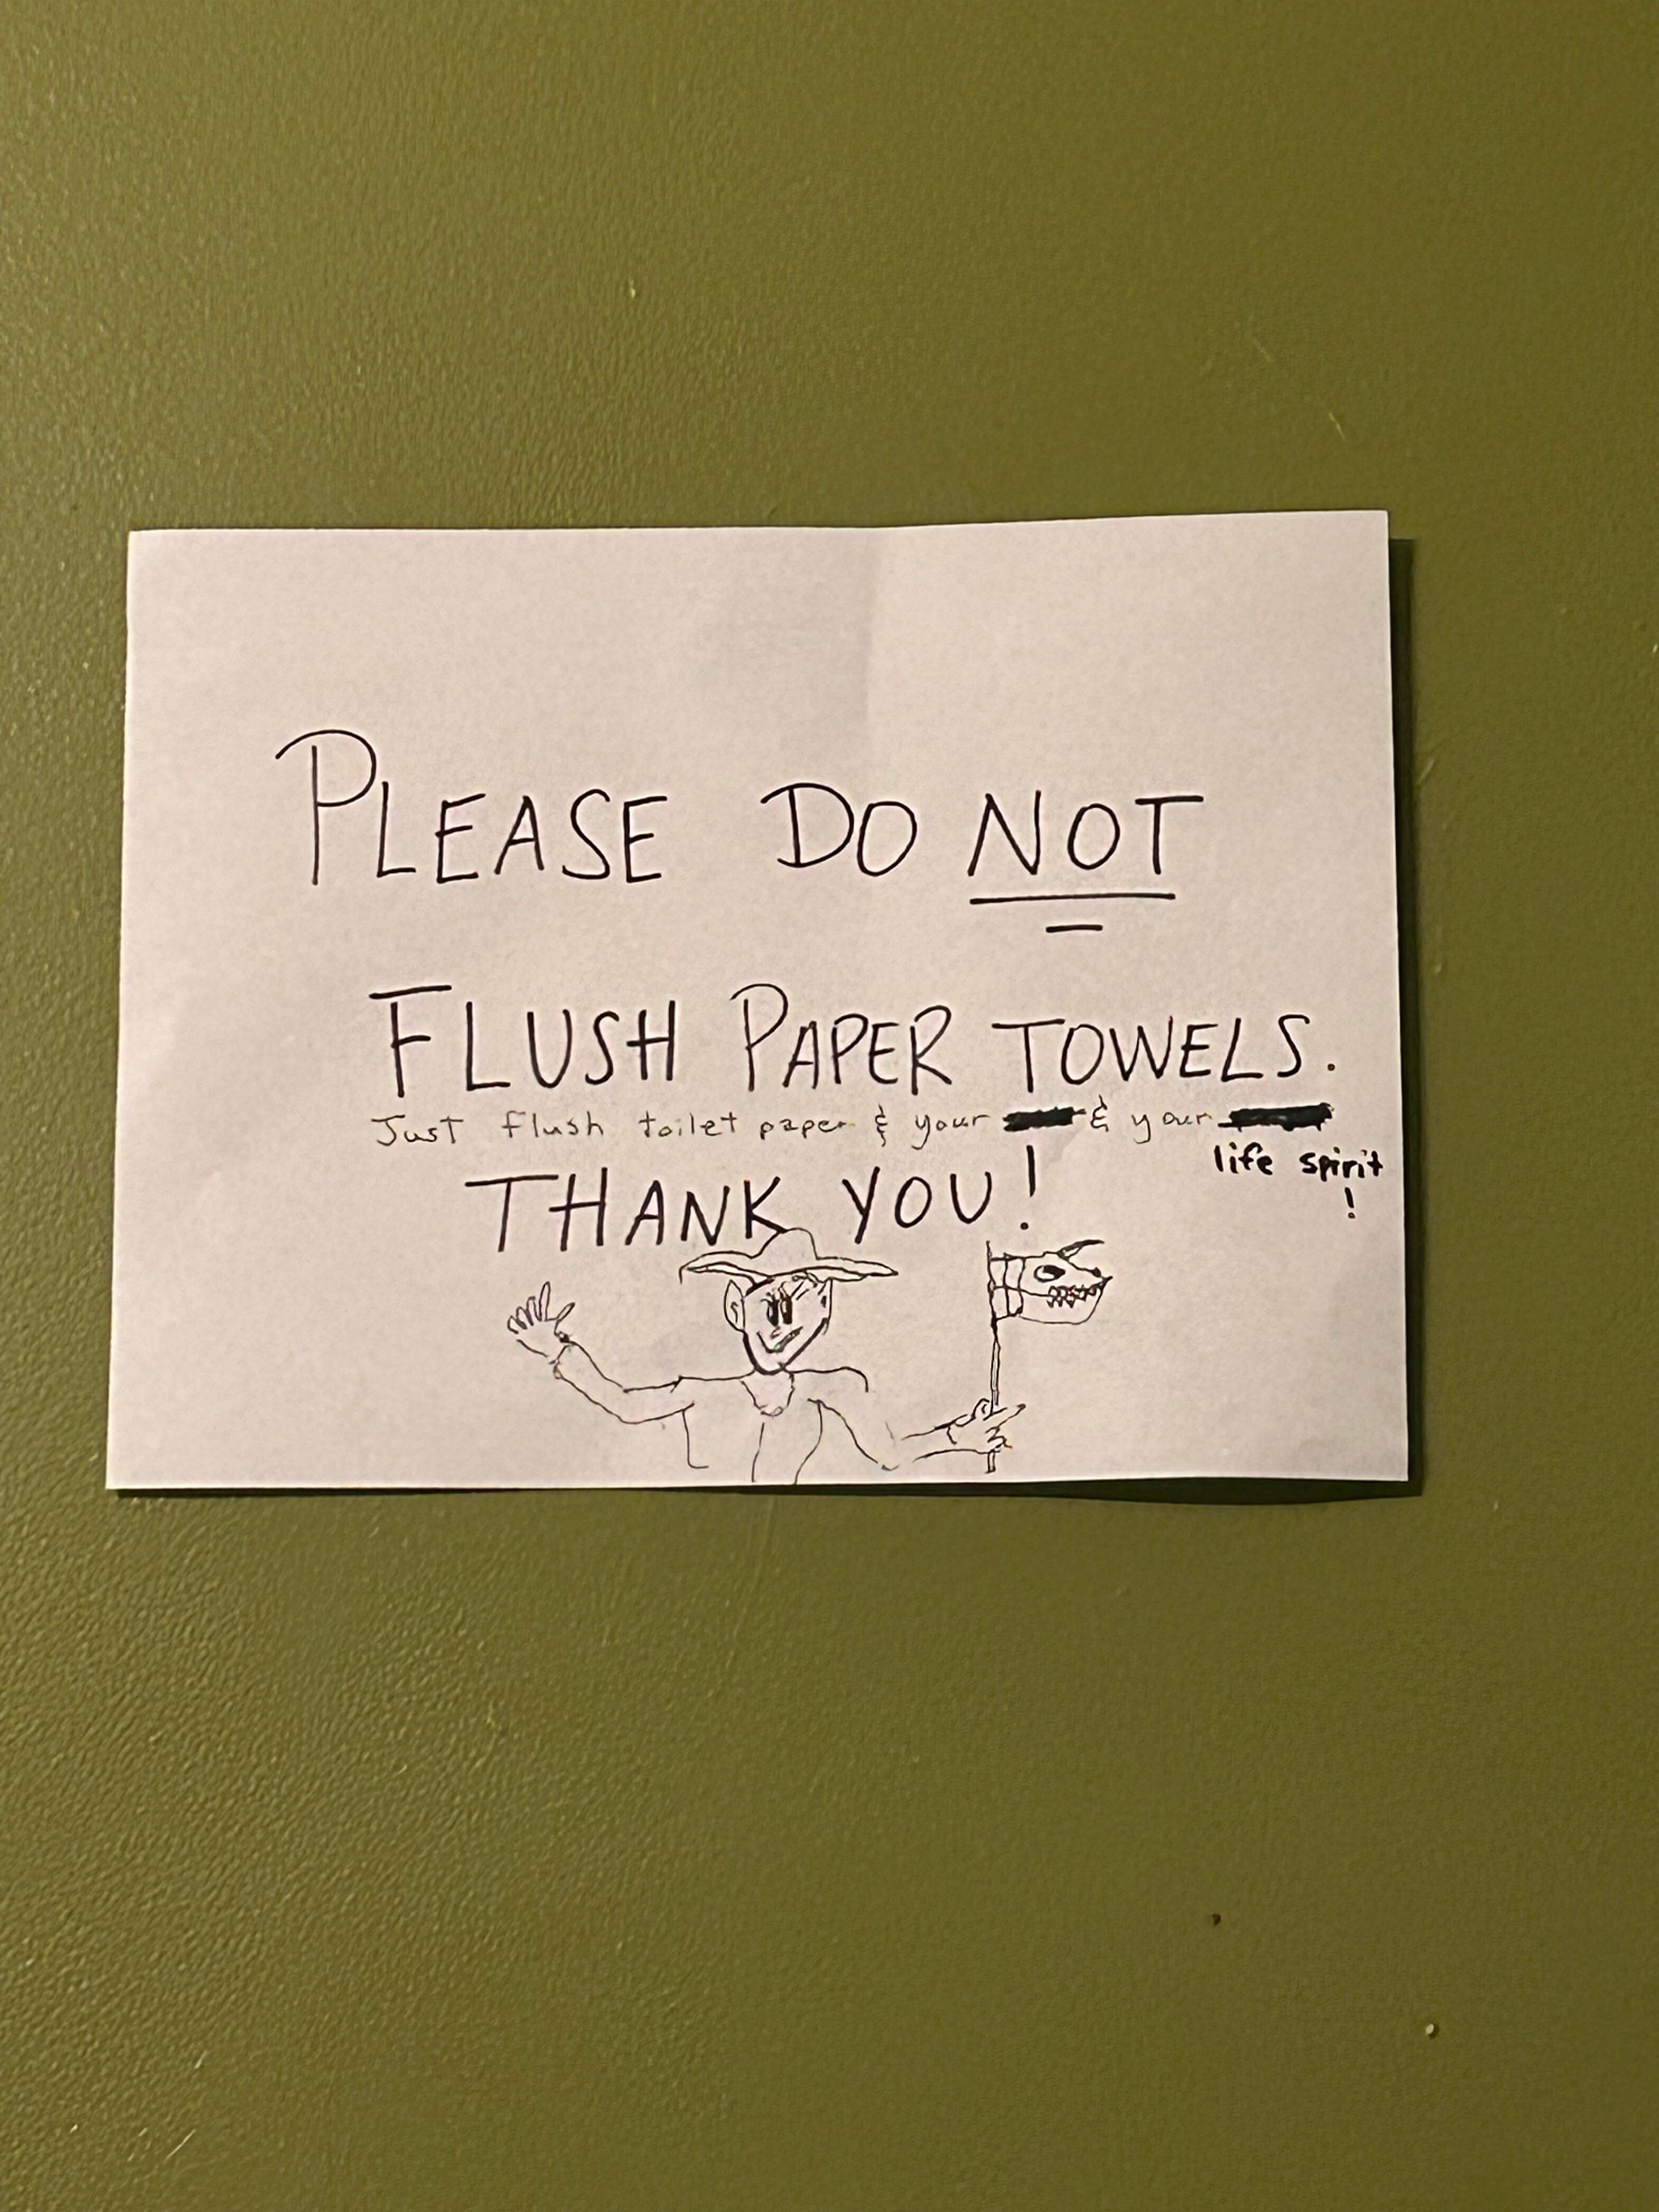 PLEASE DO NOT
FLUSH PAPER TOWELS.
Just flush toilet paper & your & your
life spirit
!
THANK YOU!